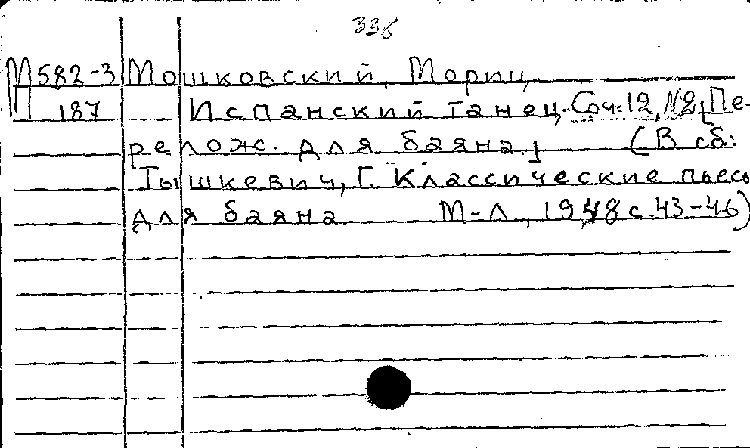 335
М582-3 Мошковский, Мориц
187 Испанский танец. Соч. 12, №2 [Пе-
релож. для баяна] (В сб:
Тышкевич, Г. Классические пьесы
для баяна М-Л, 1948 с 43-46)